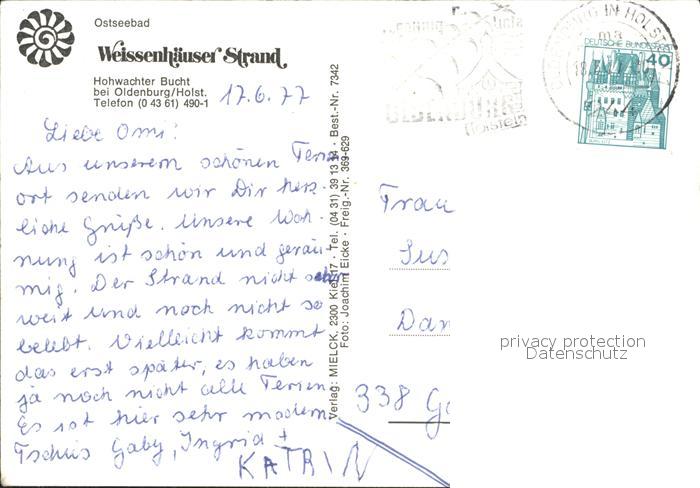 Ostseebad
Weissenhäuser Strand
Hohwachter Bucht
bei Oldenburg/Holst.
Telefon (0 43 61) 490-1
17.6.77
Liebe Omi!
Aus unserem schönen Ferien
ort senden wir Dir herz-
liche Grüße. Unsere Woh-
nung ist schön und geräu-
mig. Der Strand nicht sehr
weit und noch nicht so
belebt. Vielleicht kommt
das erst später, es haben
ja noch nicht alle Ferien
Es ist hier sehr modern.
Tschüs Gaby, Ingrid +
KATRIN
Verlag: MIELCK, 2300 Kiel 17 · Tel. (04 31) 39 13 · Best.-Nr. 7342
Foto: Joachim Eicke · Freig.-Nr. 369-629
OLDENBURG
(Holstein)
OLDENBURG IN HOLST
DEUTSCHE BUNDESPOST
40
Frau
Sus
Dan
338 Go
privacy protection
Datenschutz